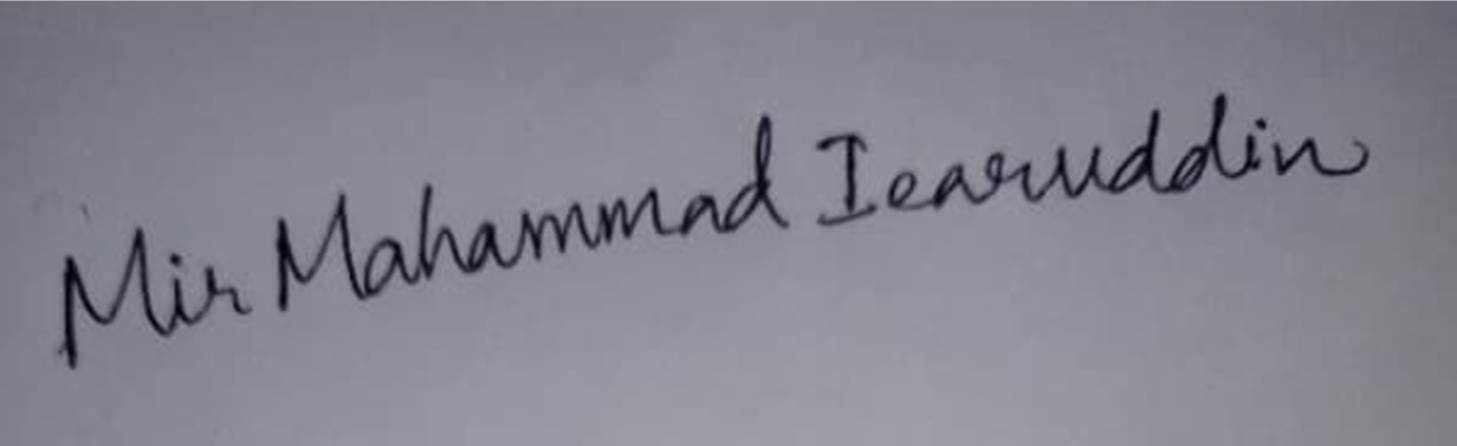 Mir Mahammad Iearuddin